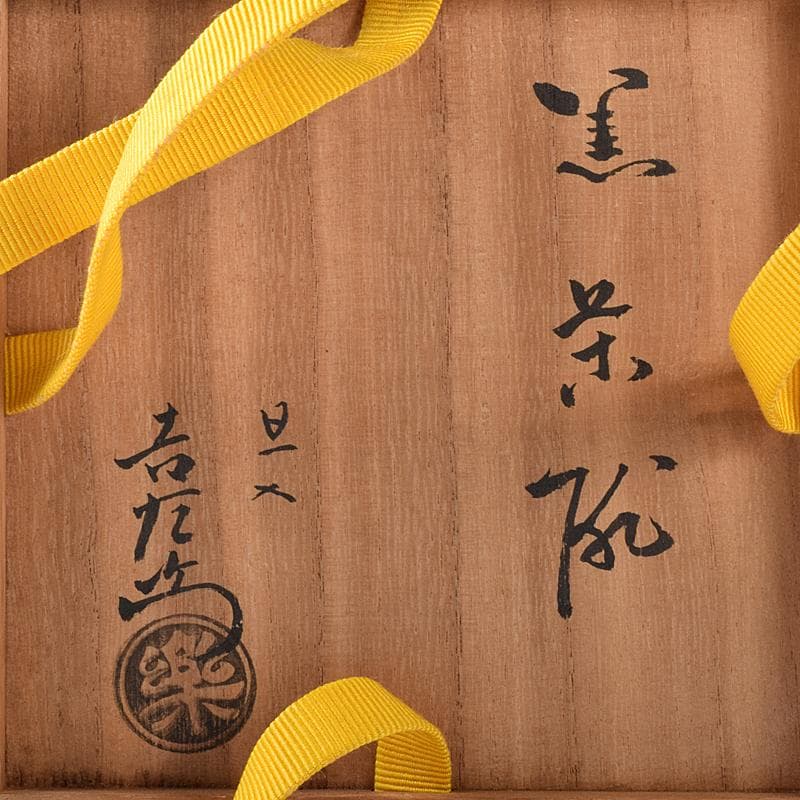 黒茶碗
旦入
吉左衛門
樂